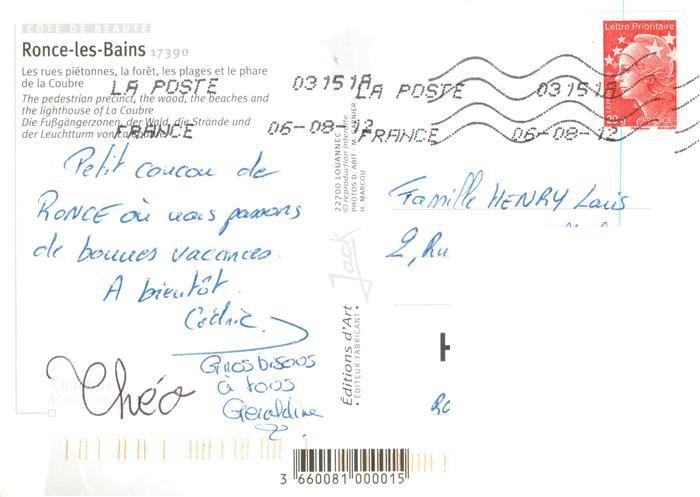 CÔTE DE BEAUTÉ
Ronce-les-Bains 17390
Les rues piétonnes, la forêt, les plages et le phare
de la Coubre
The pedestrian precinct, the wood, the beaches and
the lighthouse of La Coubre
Die Fußgängerzonen, der Wald, die Strände und
der Leuchtturm von
LA POSTE 03151A LA POSTE 03151A
FRANCE 06-08-12 FRANCE 06-08-12
Lettre Prioritaire
FRANCE
Petit coucou de
RONCE où nous passons
de bonnes vacances.
A bientôt.
Cédric
Gros bisous
à tous
Géraldine
Théo
22700 LOUANNEC
© reproduction interdite
PHOTOS D. ABIT - M. GARNIER
H. MARCOU
Jack
Editions d'Art
• EDITEUR-FABRICANT •
Famille HENRY Louis
2, Ru
H
3 660081 000015